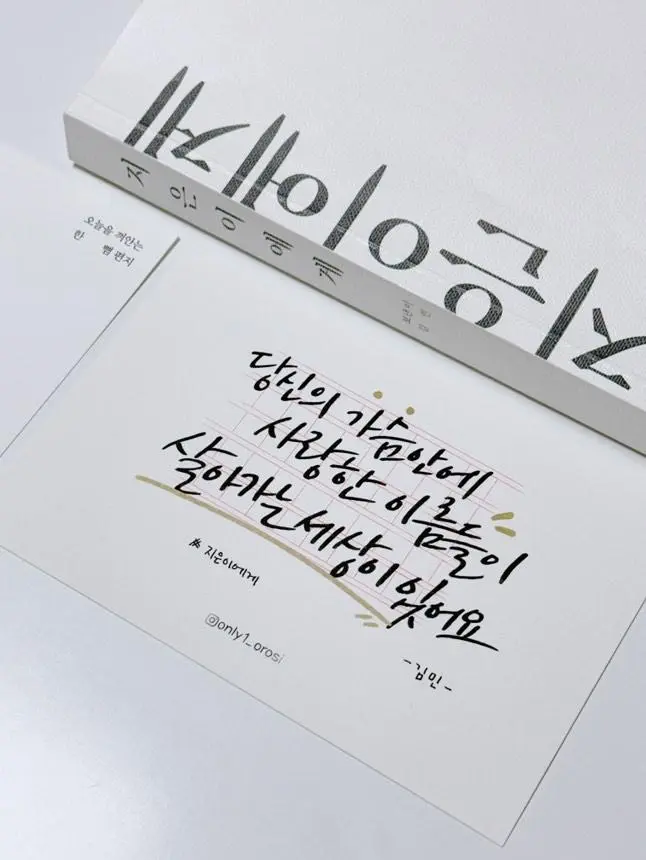 지은이에게
지은이에게
오늘을 껴안는
한 뼘 편지
당신의 가슴안에
사랑한 이름들이
살아가는 세상이 있어요
지은이에게
@only1_orosi
-김민-